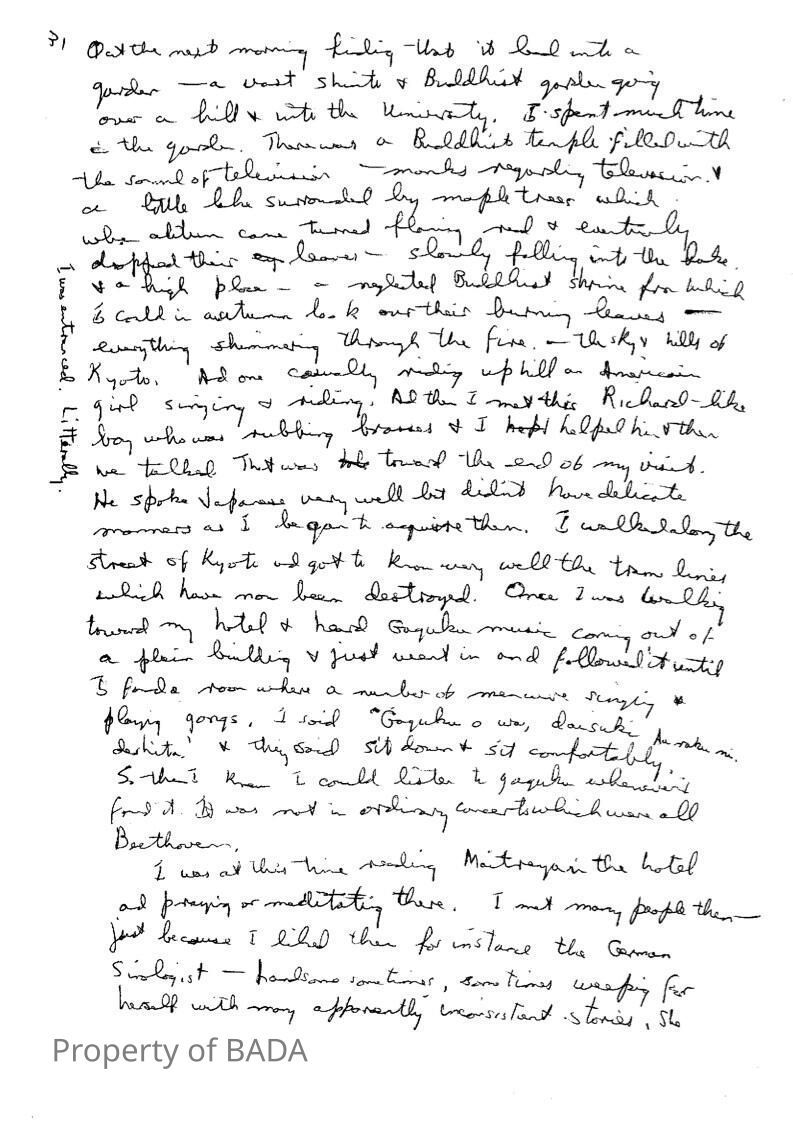 31
Out the next morning finding that it lead into a
garden — a vast shinto & Buddhist garden going
over a hill & into the University. I spent much time
in the garden. There was a Buddhist temple filled with
the sound of television — monks regarding television. &
a little lake surrounded by maple trees which
when autumn came turned flaming red & eventually
dropped their leaves — slowly falling into the lake.
& a high place — a neglected Buddhist shrine from which
I could in autumn look over their burning leaves —
everything shimmering through the fire. — the sky & hills of
Kyoto. And one casually riding up hill an American
girl singing & riding. And then I met this Richard-like
boy who was rubbing brasses & I helped him & then
we talked. That was toward the end of my visit.
He spoke Japanese very well but didn't have delicate
manners as I began to acquire them. I walked along the
street of Kyoto and got to know very well the tram lines
which have now been destroyed. Once I was walking
toward my hotel & heard Gaguku music coming out of
a plain building & just went in and followed it until
I found a room where a number of men were singing &
playing gongs. I said "Gaguku o wa, daisuki
deshita" & they said sit down & sit comfortably,
So then I knew I could listen to gaguku whenever I
found it. It was not in ordinary concerts which were all
Beethoven.
I was at this time reading Maitreya in the hotel
and praying or meditating there. I met many people then —
just because I liked them for instance the German
Sinologist — handsome sometimes, sometimes weeping for
herself with many apparently inconsistent stories, She
I was entranced. Litterally.
Property of BADA